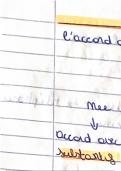 l'accord
Mee
accord avec
substantif